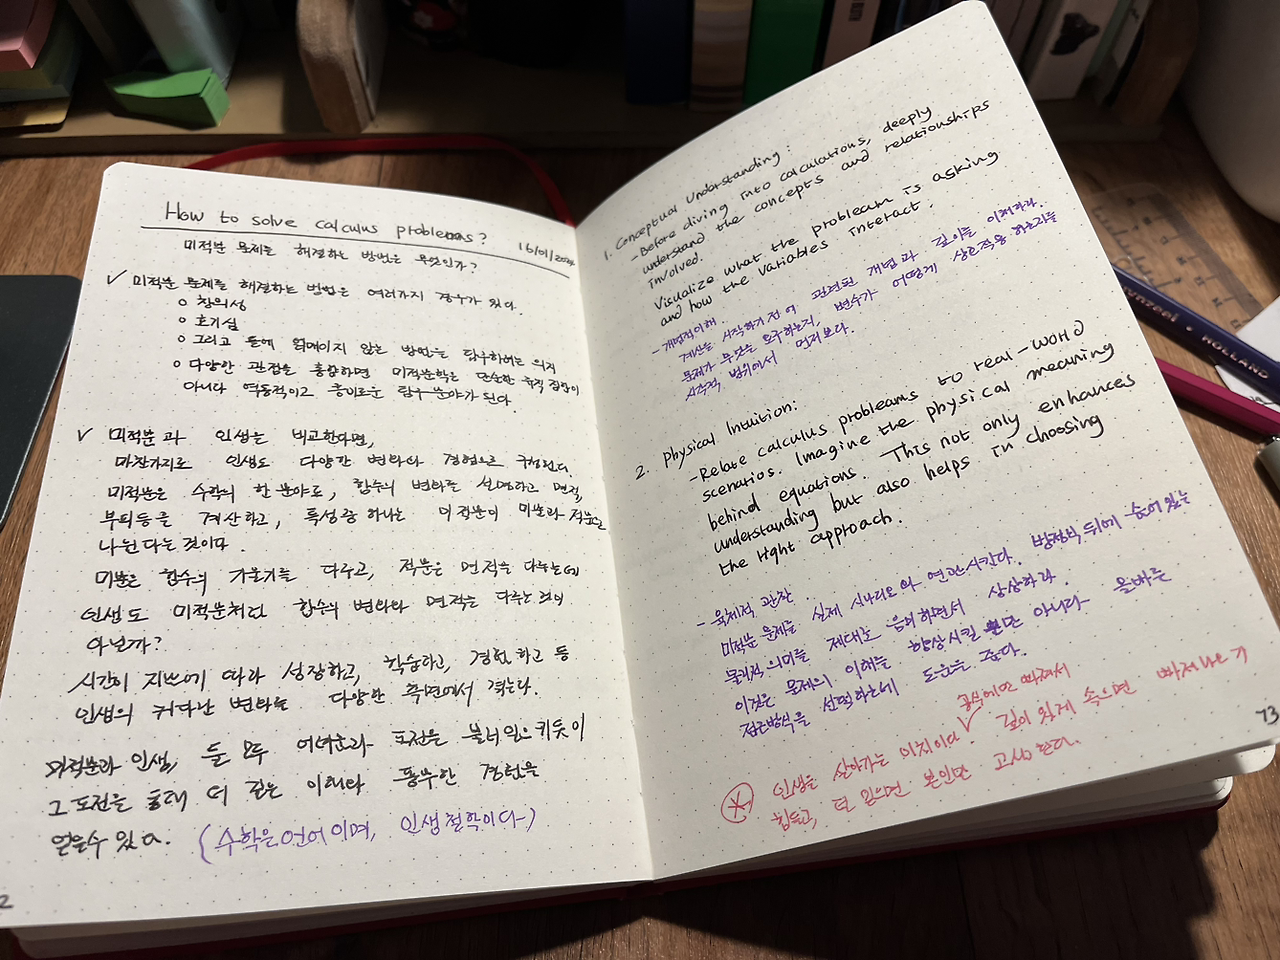 How to solve calculus problems?
16/01/2024
미적분 문제를 해결하는 방법은 무엇인가?
✓ 미적분 문제를 해결하는 방법은 여러가지 경우가 있다.
o 창의성
o 호기심
o 그리고 틀에 얽메이지 않는 방법을 탐구하려는 의지
o 다양한 관점을 통합하면 미적분학은 단순한 규칙 집합이
아니라 역동적이고 흥미로운 탐구분야가 된다.
✓ 미적분과 인생을 비교한다면,
마찬가지로 인생도 다양한 변화와 경험으로 구성된다
미적분은 수학의 한 분야로, 함수의 변화를 설명하고 면적,
부피등을 계산하고, 특성중 하나는 미적분이 미분과 적분으로
나뉜다는 것이다.
미분은 함수의 기울기를 다루고, 적분은 면적을 다루는데
인생도 미적분처럼 함수의 변화와 면적을 다루는 것이
아닐까?
시간이 지남에 따라 성장하고, 학습하고, 경험하고 등
인생의 커다란 변화를 다양한 측면에서 겪는다.
미적분과 인생, 둘 모두 어려운과 도전을 불러일으키듯이
그 도전을 통해 더 깊은 이해와 풍부한 경험을
얻을수 있다. (수학은 언어이며, 인생철학이다)
2
1. Conceptual Understanding:
- Before diving into calculations, deeply
understand the concepts and relationships
involved.
Visualize what the probleam is asking
and how the variables interact.
- 개념적이해.
계산을 시작하기 전에 관련된 개념과 깊이를 이해하라.
문제가 무엇을 요구하는지, 변수가 어떻게 상호작용 하는지를
시각적 범위에서 먼저보라.
2. Physical Intuition:
- Relate calculus probleams to real-world
scenarios. Imagine the physical meaning
behind equations. This not only enhances
understanding but also helps in choosing
the right approach.
- 육체적 관찰.
미적분 문제를 실제 시나리오와 연관시킨다. 방정식 뒤에 숨어있는
물리적 의미를 제대로 음미하면서 상상하라.
이것은 문제의 이해를 향상시킬 뿐만 아니라 올바른
접근방식을 선택하는데 도움을 준다.
공식에만 빠져서
인생을 살아가는 이치이다 ✓ 깊이 있게 속으면 빠져나오기
힘들고, 덜 익으면 본인만 고생한다.
73
HOLLAND